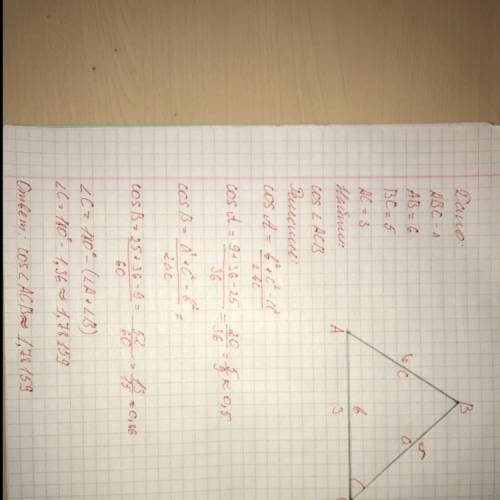 Дано:
ABC - Δ
AB = 6
BC = 5
AC = 3
Найти:
cos∠ACB
Решение:
cos A = b² + c² - a² / 2bc
cos A = 9 + 36 - 25 / 36 = 20 / 36 = 5 / 9 ≈ 0,5
cos B = a² + c² - b² / 2ac =
cos B = 25 + 36 - 9 / 60 = 52 / 60 = 13 / 15 ≈ 0,86
∠C = 180° - (∠A + ∠B)
∠C = 180° - 1,36 ≈ 1,78159
Ответ: cos∠ACB ≈ 1,78159
B
6
c
a
5
A
b
3